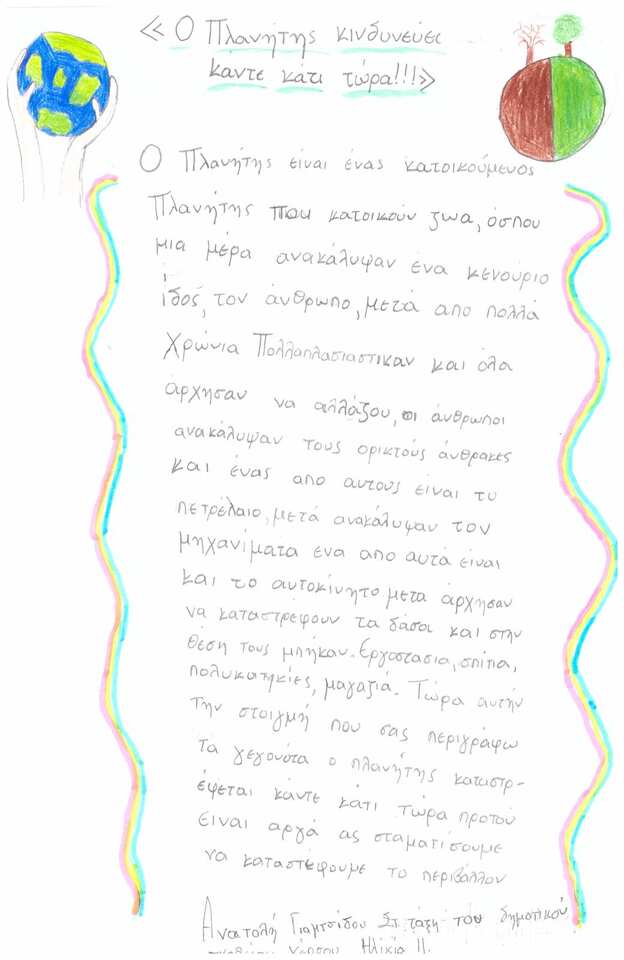 «Ο Πλανήτης κινδυνεύει
κάντε κατι τώρα!!!»
Ο Πλανήτης είναι ένας κατοικούμενος
Πλανήτης που κατοικούν ζωα, όσπου
μια μέρα ανακάλυψαν ένα κενούριο
ίδος, τον άνθρωπο, μετά απο πολλά
Χρώνια Πολλαπλασιαστικαν και όλα
άρχησαν να αλλάζου, οι άνθρωποι
ανακάλυψαν τους ορικτούς άνθρακες
και ένας απο αυτους είναι το
πετρέλαιο, μετά ανακάλυψαν τον
μηχανίματα ενα απο αυτά είναι
και το αυτοκίνητο μετα άρχησαν
να καταστρεφουν τα δάσοι και στην
θεση τους μπήκαν. Εργοστασια, σπίτια,
πολυκατηκίες, μαγαζιά. Τώρα αυτήν
την στοιγμή που σας περιγράφω
τα γεγονότα ο πλανήτης καταστρ-
έφεται κάντε κάτι τώρα προτού
ειναι αργά ας σταματίσουμε
να καταστέφουμε το περιβάλλον
Ανατολή Γιαμτσίδου Στ τάξη του δημοτικού
Ηλικία 11.